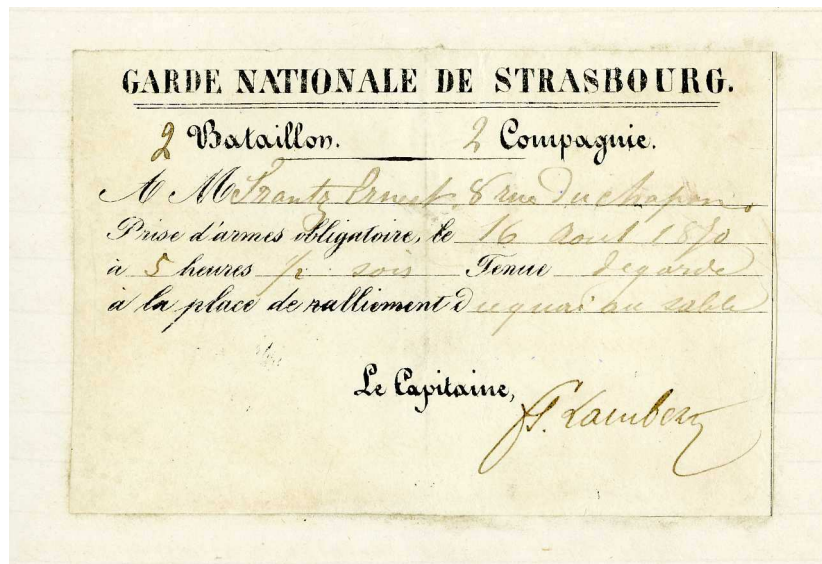 GARDE NATIONALE DE STRASBOURG.
2 Bataillon. 2 Compagnie.
A M Frantz Ernest 8 rue du chapon
Prise d'armes obligatoire, le 16 aout 1870
à 5 heures ½ soir Tenue de garde
à la place de ralliement du quai au sable
Le Capitaine,